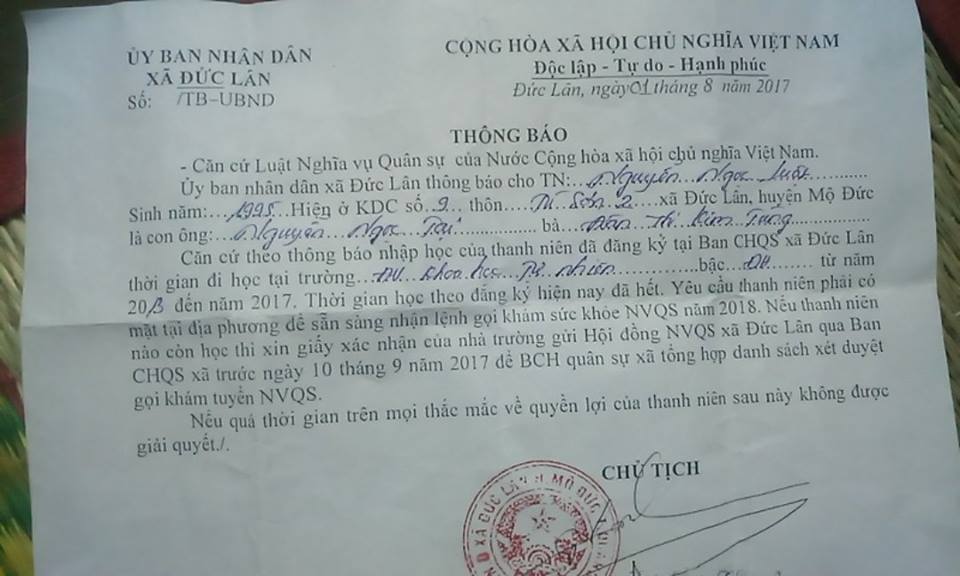 ỦY BAN NHÂN DÂN
XÃ ĐỨC LÂN
Số: /TB-UBND
CỘNG HÒA XÃ HỘI CHỦ NGHĨA VIỆT NAM
Độc lập - Tự do - Hạnh phúc
Đức Lân, ngày 01 tháng 8 năm 2017
THÔNG BÁO
- Căn cứ Luật Nghĩa vụ Quân sự của Nước Cộng hòa xã hội chủ nghĩa Việt Nam.
Ủy ban nhân dân xã Đức Lân thông báo cho TN:...Nguyễn Ngọc
Sinh năm:...1995...Hiện ở KDC số..9...thôn...Tú Sơn 2....xã Đức Lân, huyện Mộ Đức
là con ông:...Nguyễn Ngọc Tại............... bà.....Thị Kim Tùng...............
Căn cứ theo thông báo nhập học của thanh niên đã đăng ký tại Ban CHQS xã Đức Lân
thời gian đi học tại trường...ĐH Khoa học Tự nhiên...............bậc....ĐH........ từ năm
2013 đến năm 2017. Thời gian học theo đăng ký hiện nay đã hết. Yêu cầu thanh niên phải có
mặt tại địa phương để sẵn sàng nhận lệnh gọi khám sức khỏe NVQS năm 2018. Nếu thanh niên
nào còn học thì xin giấy xác nhận của nhà trường gửi Hội đồng NVQS xã Đức Lân qua Ban
CHQS xã trước ngày 10 tháng 9 năm 2017 để BCH quân sự xã tổng hợp danh sách xét duyệt
gọi khám tuyển NVQS.
Nếu quá thời gian trên mọi thắc mắc về quyền lợi của thanh niên sau này không được
giải quyết./.
CHỦ TỊCH
XÃ ĐỨC LÂN H. MỘ ĐỨC